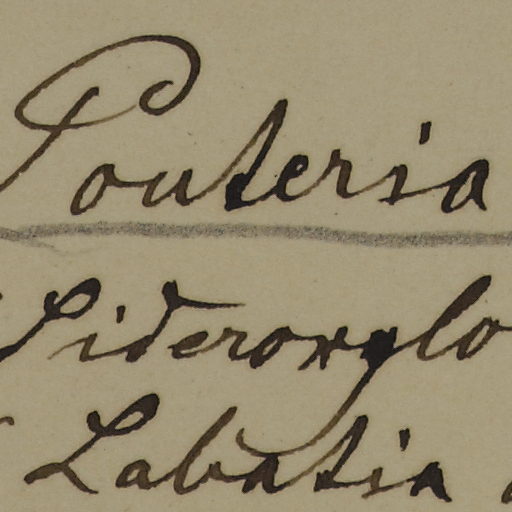 Pouteria
Sideroxylo
Labatia